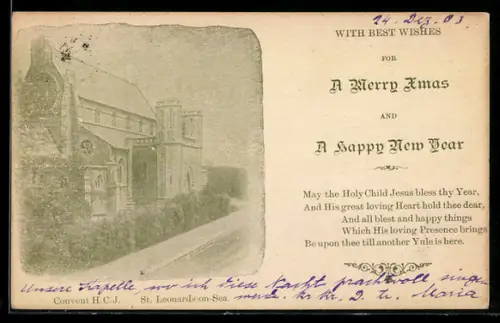 24. Dez. 03
WITH BEST WISHES
FOR
A Merry Xmas
AND
A Happy New Year
May the Holy Child Jesus bless thy Year,
And His great loving Heart hold thee dear,
And all blest and happy things
Which His loving Presence brings
Be upon thee till another Yule is here.
Unsere Kapelle, wo ich diese Nacht prachtvoll singen
werde.
Maria
Convent H.C.J. St. Leonards-on-Sea.